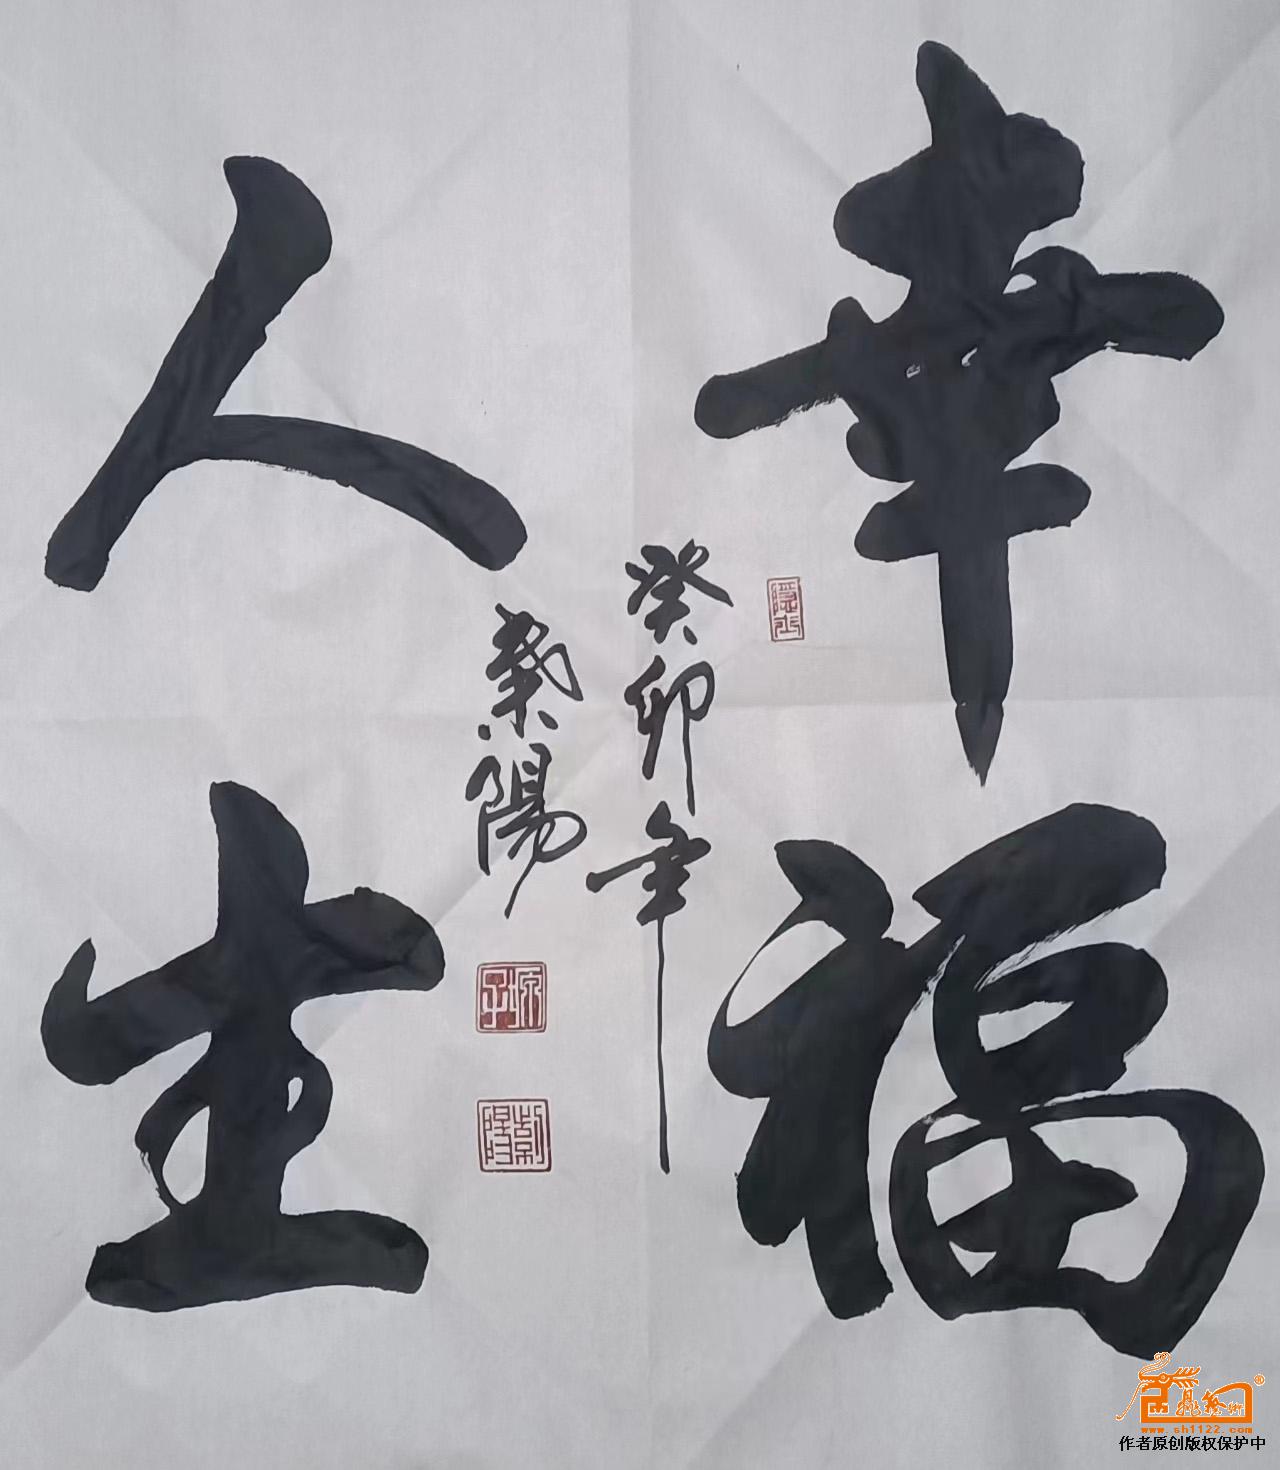 幸福
人生
癸卯年
隱士
www.sh1122.com
作者原创版权保护中